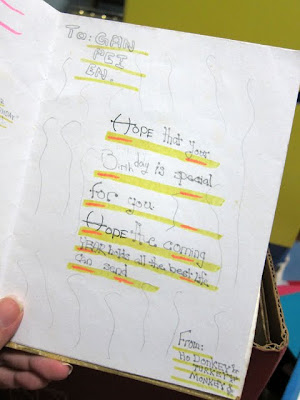 To: GAN
PEI
EN.
HOPE that your
Birth day is special
for you
HOPE the coming
YEAR holds all the best life
can send
From:
Ho DONKEY &
TURKEY &
MONKEY &